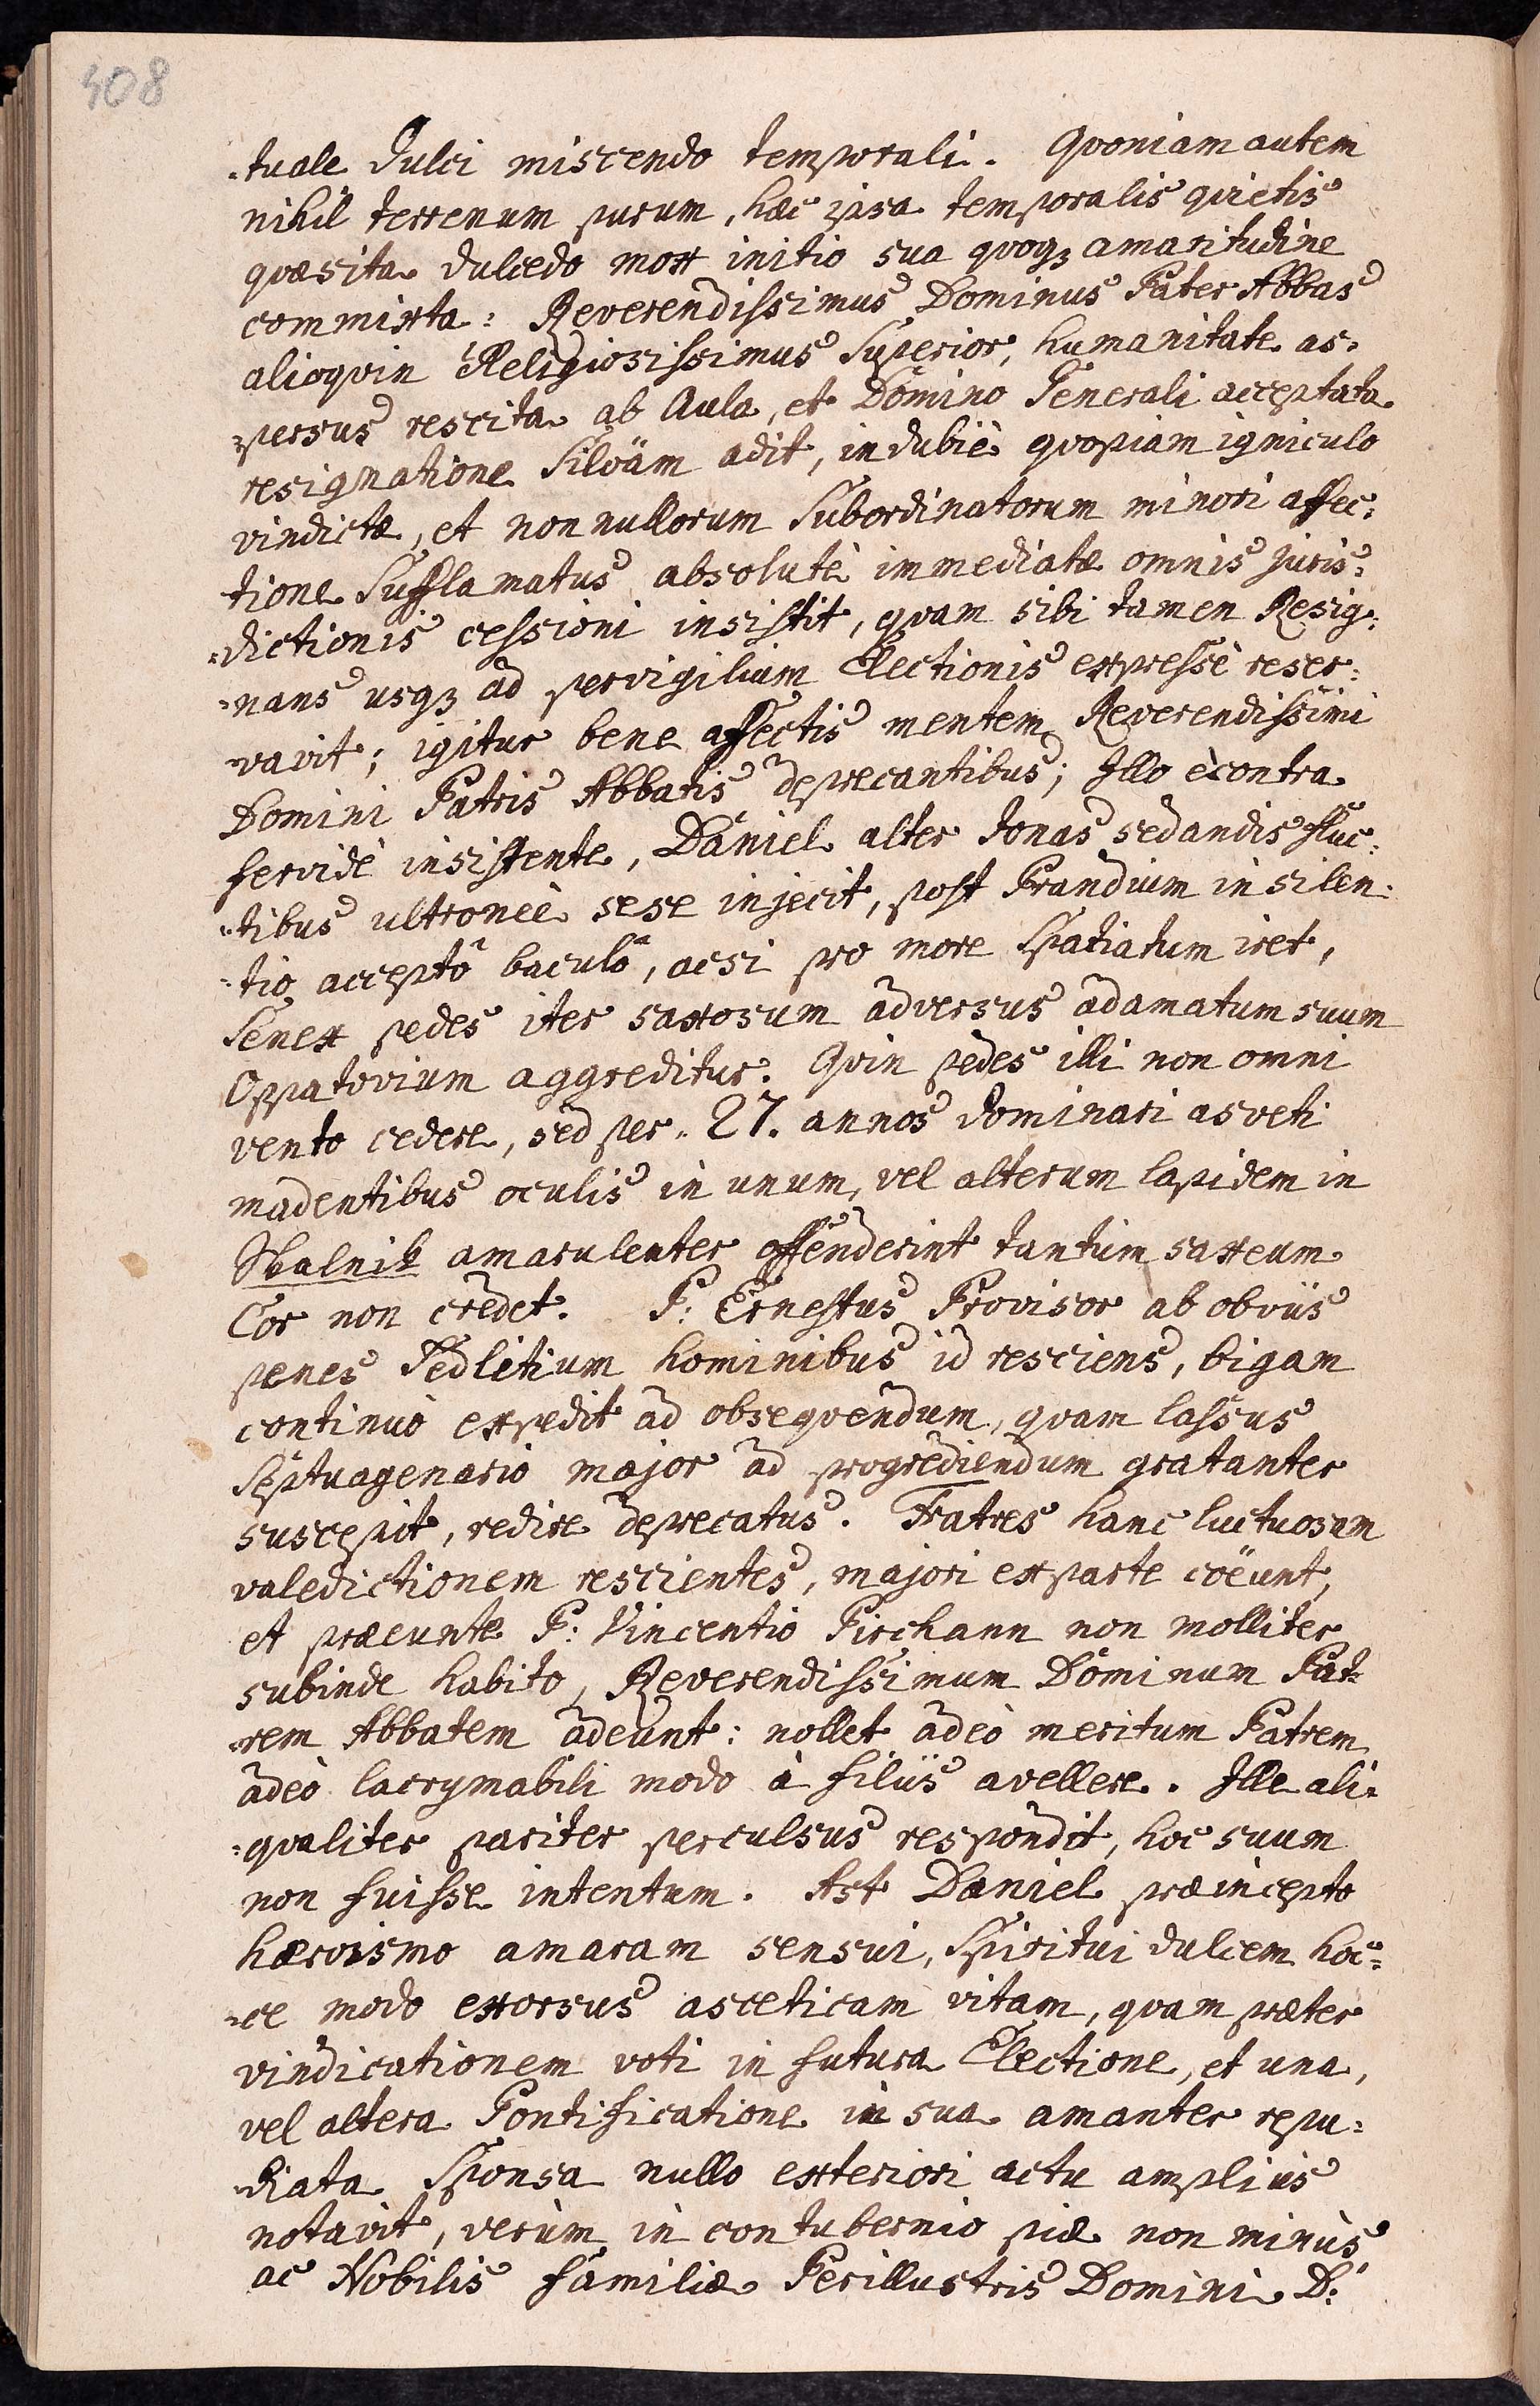 408
-tuale dulci miscendo temporali. Qvoniam autem
nihil terrenum purum, hæc ipsa temporalis qvietis
qvæsita dulcedo mox initio sua qvoqꝫ amaritudine
commixta: Reverendissimus Dominus Pater Abbas
alioqvin Religiosissimus Superior, humanitate as-
persus rescita ab Aula, et Domino Generali acceptata
resignatione Silvam adit, indubiè qvopiam igniculo
vindictæ, et nonnullorum Subordinatorum minori affec-
tione Sufflamatus absolutè immediatæ omnis juris-
-dictionis cessioni insistit, qvam sibi tamen Resig-
-nans usqꝫ ad pervigilium Electionis expressè reser-
-vavit; igitur bene affectis mentem Reverendissimi
Domini Patris Abbatis deprecantibus; Illo ècontra
fervidè insistente, Daniel alter Jonas sedandis fluc-
-tibus ultroneè sese injecit, post Prandium in silen-
-tio acceptô baculô, acsi pro more Spatiatum iret,
Senex pedes iter saxosum adversus adamatum suum
Oppatovium aggreditur. Qvin pedes illi non omni
vento cedere, sed per 27. annos dominari asveti
madentibus oculis in unum, vel alterum lapidem in
Skalnik amarulenter offenderint tantùm saxeum
Cor non credet. P: Ernestus Provisor ab obviis
penes Sedletium hominibus id resciens, bigam
continuò expedit ad obseqvendum, qvam lassus
Septuagenario major ad progrediendum gratanter
suscepit, redire deprecatus. Fratres hanc luctuosam
valedictionem rescientes, majori ex parte coëunt,
et præeunte P: Vincentio Pirchann non molliter
subinde habito, Reverendissimum Dominum Pat-
-rem Abbatem adeunt: nollet adeò meritum Patrem
adeò lacrymabili modo à filiis avellere. Ille ali-
-qvaliter pariter perculsus respondit, hoc suum
non fuisse intentum. Ast Daniel præincepto
hæroismo amaram sensui, Spiritui dulcem hoc-
-ce modo exorsus asceticam vitam, qvam præter
vindicationem voti in futura Electione, et una,
vel altera Pontificatione in sua amanter repu-
-diata Sponsa nullo exteriori actu ampliùs
notavit, verùm in contubernio piæ non minùs
ac Nobilis familiæ Perillustris Domini D: